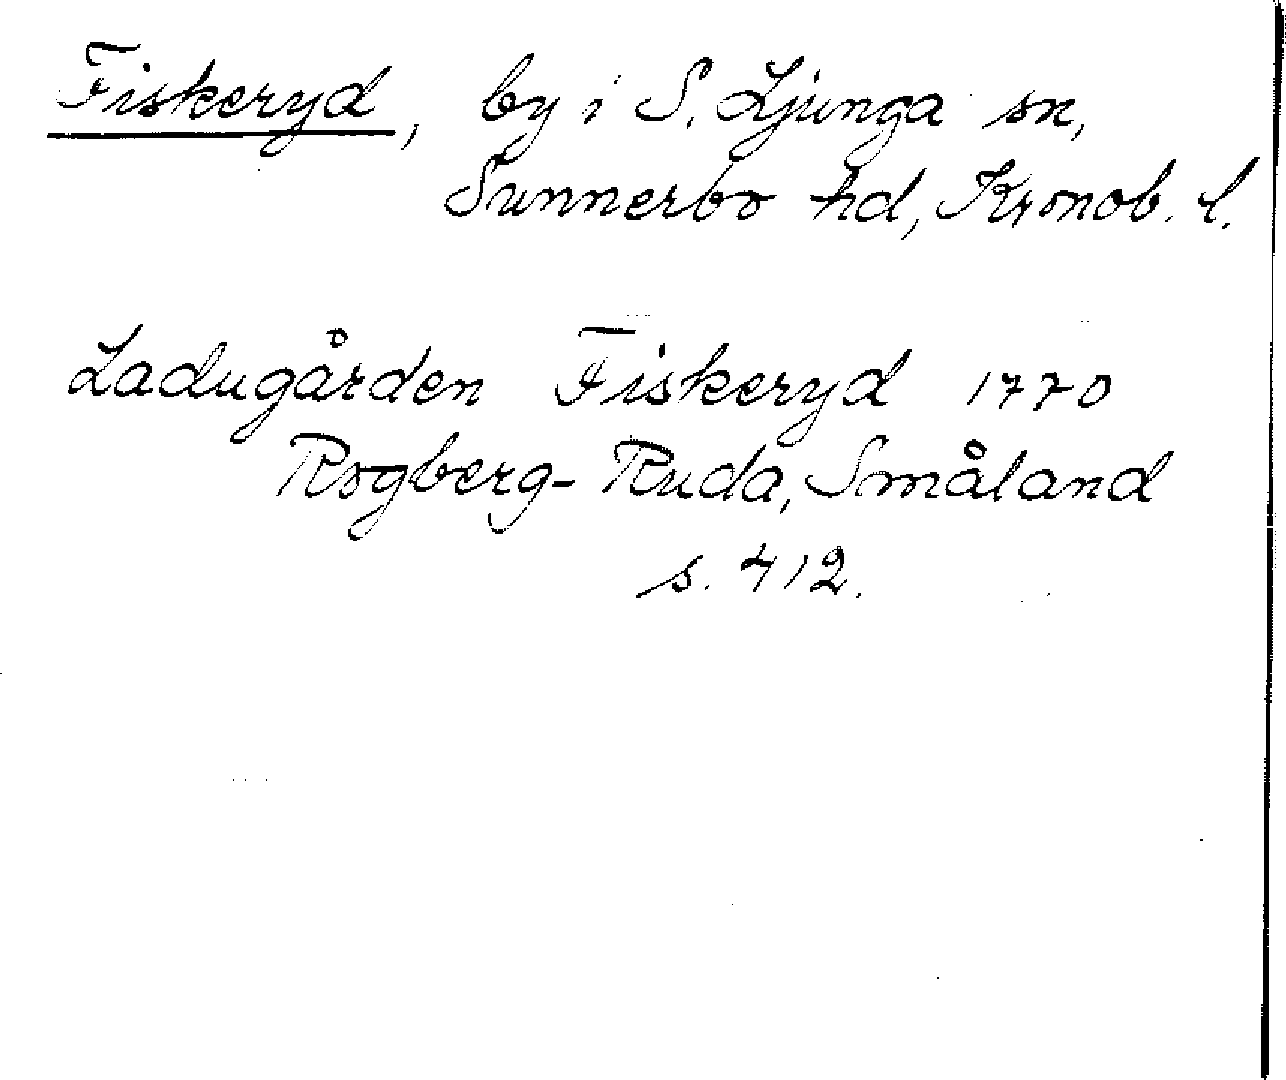 Fiskeryd, by i S. Ljunga sn,
Sunnerbo hd, Kronob. l.
Ladugården Fiskeryd 1770
Rogberg-Ruda, Småland
s. 412.